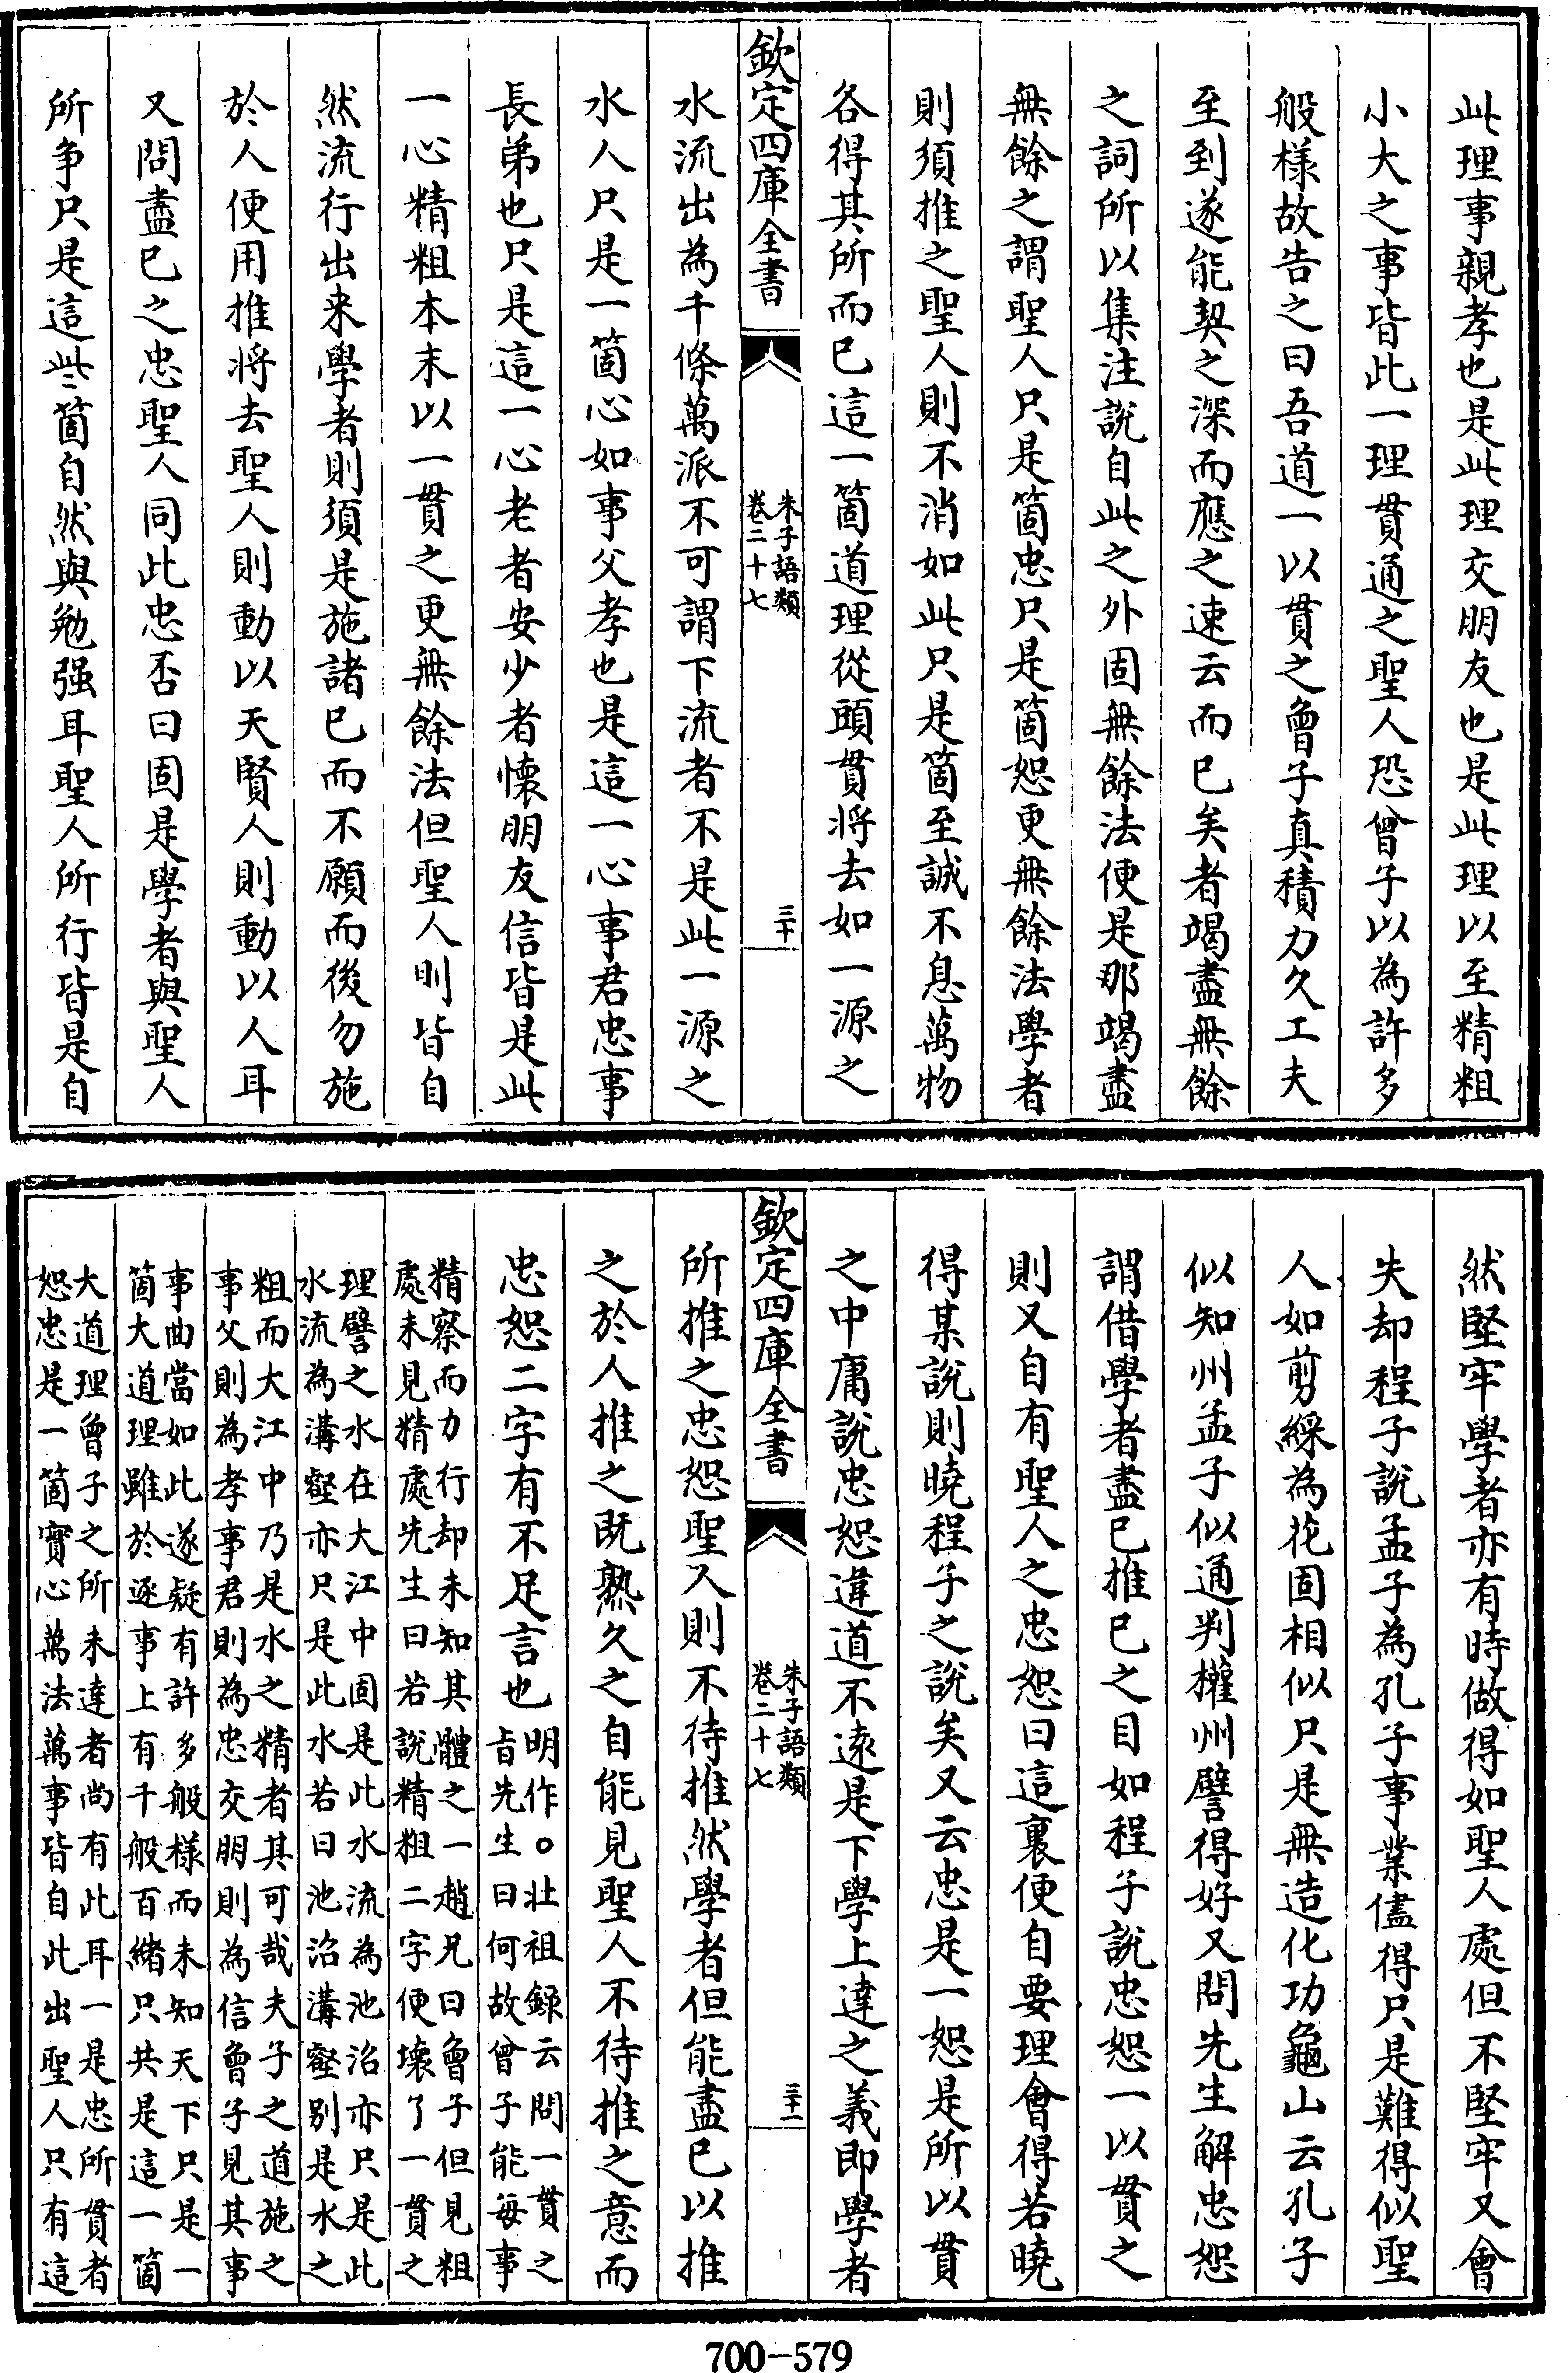 此理事親孝也是此理交朋友也是此理以至精粗
小大之事皆此一理貫通之聖人恐曾子以為許多
般樣故告之曰吾道一以貫之曾子真積力久工夫
至到遂能契之深而應之速云而已矣者竭盡無餘
之詞所以集注說自此之外固無餘法便是那竭盡
無餘之謂聖人只是箇忠只是箇恕更無餘法學者
則須推之聖人則不消如此只是箇至誠不息萬物
各得其所而已這一箇道理從頭貫将去如一源之
欽定四庫全書
朱子語類
卷二十七
三十
水流出為千條萬派不可謂下流者不是此一源之
水人只是一箇心如事父孝也是這一心事君忠事
長弟也只是這一心老者安少者懷朋友信皆是此
一心精粗本末以一貫之更無餘法但聖人則皆自
然流行出来學者則須是施諸已而不願而後勿施
於人便用推将去聖人則動以天賢人則動以人耳
又問盡已之忠聖人同此忠否曰固是學者與聖人
所争只是這些箇自然與勉强耳聖人所行皆是自
然堅牢學者亦有時做得如聖人處但不堅牢又會
失却程子說孟子為孔子事業儘得只是難得似聖
人如剪綵為花固相似只是無造化功龜山云孔子
似知州孟子似通判權州譬得好又問先生解忠恕
謂借學者盡已推已之目如程子說忠恕一以貫之
則又自有聖人之忠恕曰這裏便自要理會得若曉
得某說則曉程子之說矣又云忠是一恕是所以貫
之中庸說忠恕違道不逺是下學上達之義即學者
欽定四庫全書
朱子語類
卷二十七
三十一
所推之忠恕聖人則不待推然學者但能盡已以推
之於人推之既熟久之自能見聖人不待推之意而
忠恕二字有不足言也明作○壯祖錄云問一貫之
旨先生曰何故曾子能每事
精察而力行却未知其體之一趙兄曰曾子但見粗
處未見精處先生曰若說精粗二字便壞了一貫之
理譬之水在大江中固是此水流為池沼亦只是此
水流為溝壑亦只是此水若曰池沼溝壑别是水之
粗而大江中乃是水之精者其可哉夫子之道施之
事父則為孝事君則為忠交朋則為信曾子見其事
事曲當如此遂疑有許多般様而未知天下只是一
箇大道理雖於逐事上有千般百緒只共是這一箇
大道理曾子之所未達者尚有此耳一是忠所貫者
恕忠是一箇實心萬法萬事皆自此出聖人只有這
700-579